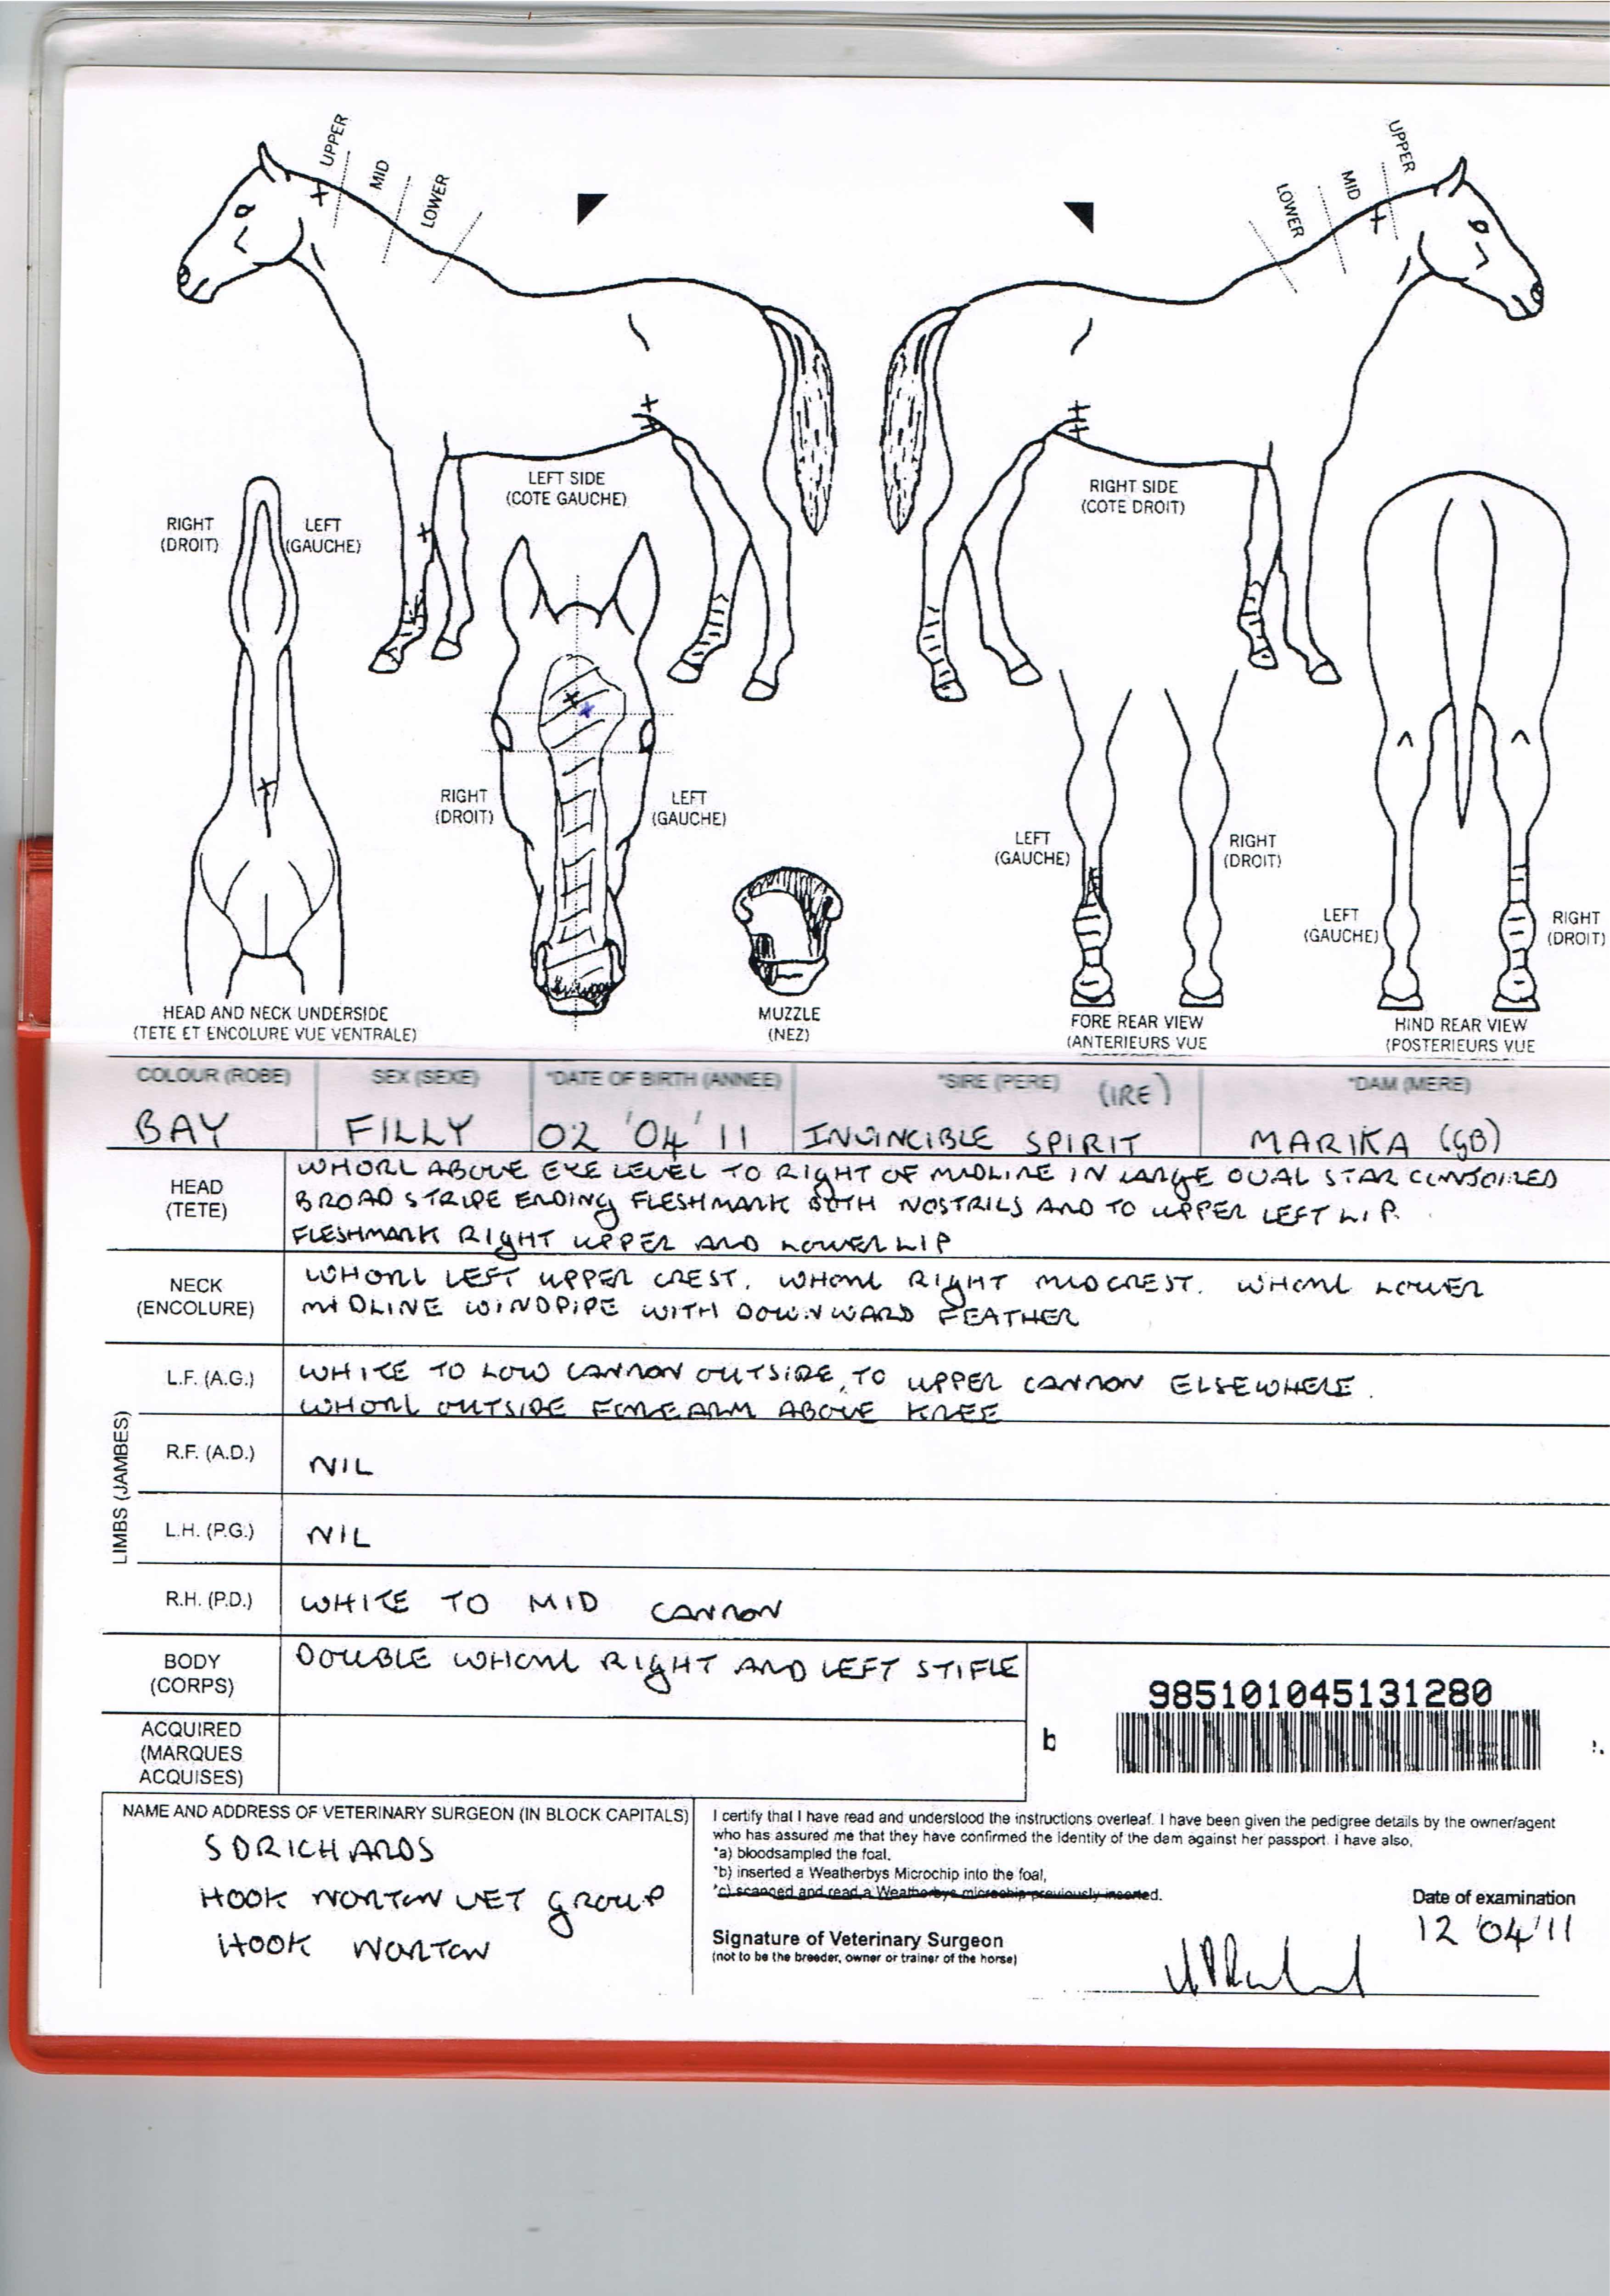 UPPER
MID
LOWER
UPPER
MID
LOWER
LEFT SIDE
(COTE GAUCHE)
RIGHT SIDE
(COTE DROIT)
RIGHT
(DROIT)
LEFT
(GAUCHE)
RIGHT
(DROIT)
LEFT
(GAUCHE)
LEFT
(GAUCHE)
RIGHT
(DROIT)
LEFT
(GAUCHE)
RIGHT
(DROIT)
HEAD AND NECK UNDERSIDE
(TETE ET ENCOLURE VUE VENTRALE)
MUZZLE
(NEZ)
FORE REAR VIEW
(ANTERIEURS VUE
HIND REAR VIEW
(POSTERIEURS VUE
COLOUR (ROBE) SEX (SEXE) *DATE OF BIRTH (ANNEE) *SIRE (PERE) (IRE) *DAM (MERE)
BAY FILLY 02 '04 '11 INVINCIBLE SPIRIT MARIKA (GB)
HEAD
(TETE)
WHORL ABOVE EYE LEVEL TO RIGHT OF MIDLINE IN LARGE OVAL STAR CONJOINED
BROAD STRIPE ENDING FLESHMARK BOTH NOSTRILS AND TO UPPER LEFT LIP.
FLESHMARK RIGHT UPPER AND LOWER LIP
NECK
(ENCOLURE)
WHORL LEFT UPPER CREST. WHORL RIGHT MIDCREST. WHORL LOWER
MIDLINE WINDPIPE WITH DOWNWARD FEATHER
LIMBS (JAMBES)
L.F. (A.G.)
WHITE TO LOW CANNON OUTSIDE, TO UPPER CANNON ELSEWHERE.
WHORL OUTSIDE FOREARM ABOVE KNEE
R.F. (A.D.) NIL
L.H. (P.G.) NIL
R.H. (P.D.) WHITE TO MID CANNON
BODY
(CORPS)
DOUBLE WHORL RIGHT AND LEFT STIFLE
ACQUIRED
(MARQUES
ACQUISES)
985101045131280
b
NAME AND ADDRESS OF VETERINARY SURGEON (IN BLOCK CAPITALS)
S D RICHARDS
HOOK NORTON VET GROUP
HOOK NORTON
I certify that I have read and understood the instructions overleaf. I have been given the pedigree details by the owner/agent
who has assured me that they have confirmed the identity of the dam against her passport. I have also,
*a) bloodsampled the foal,
*b) inserted a Weatherbys Microchip into the foal,
*c) scanned and read a Weatherbys microchip previously inserted.
Date of examination
12 '04 '11
Signature of Veterinary Surgeon
(not to be the breeder, owner or trainer of the horse)